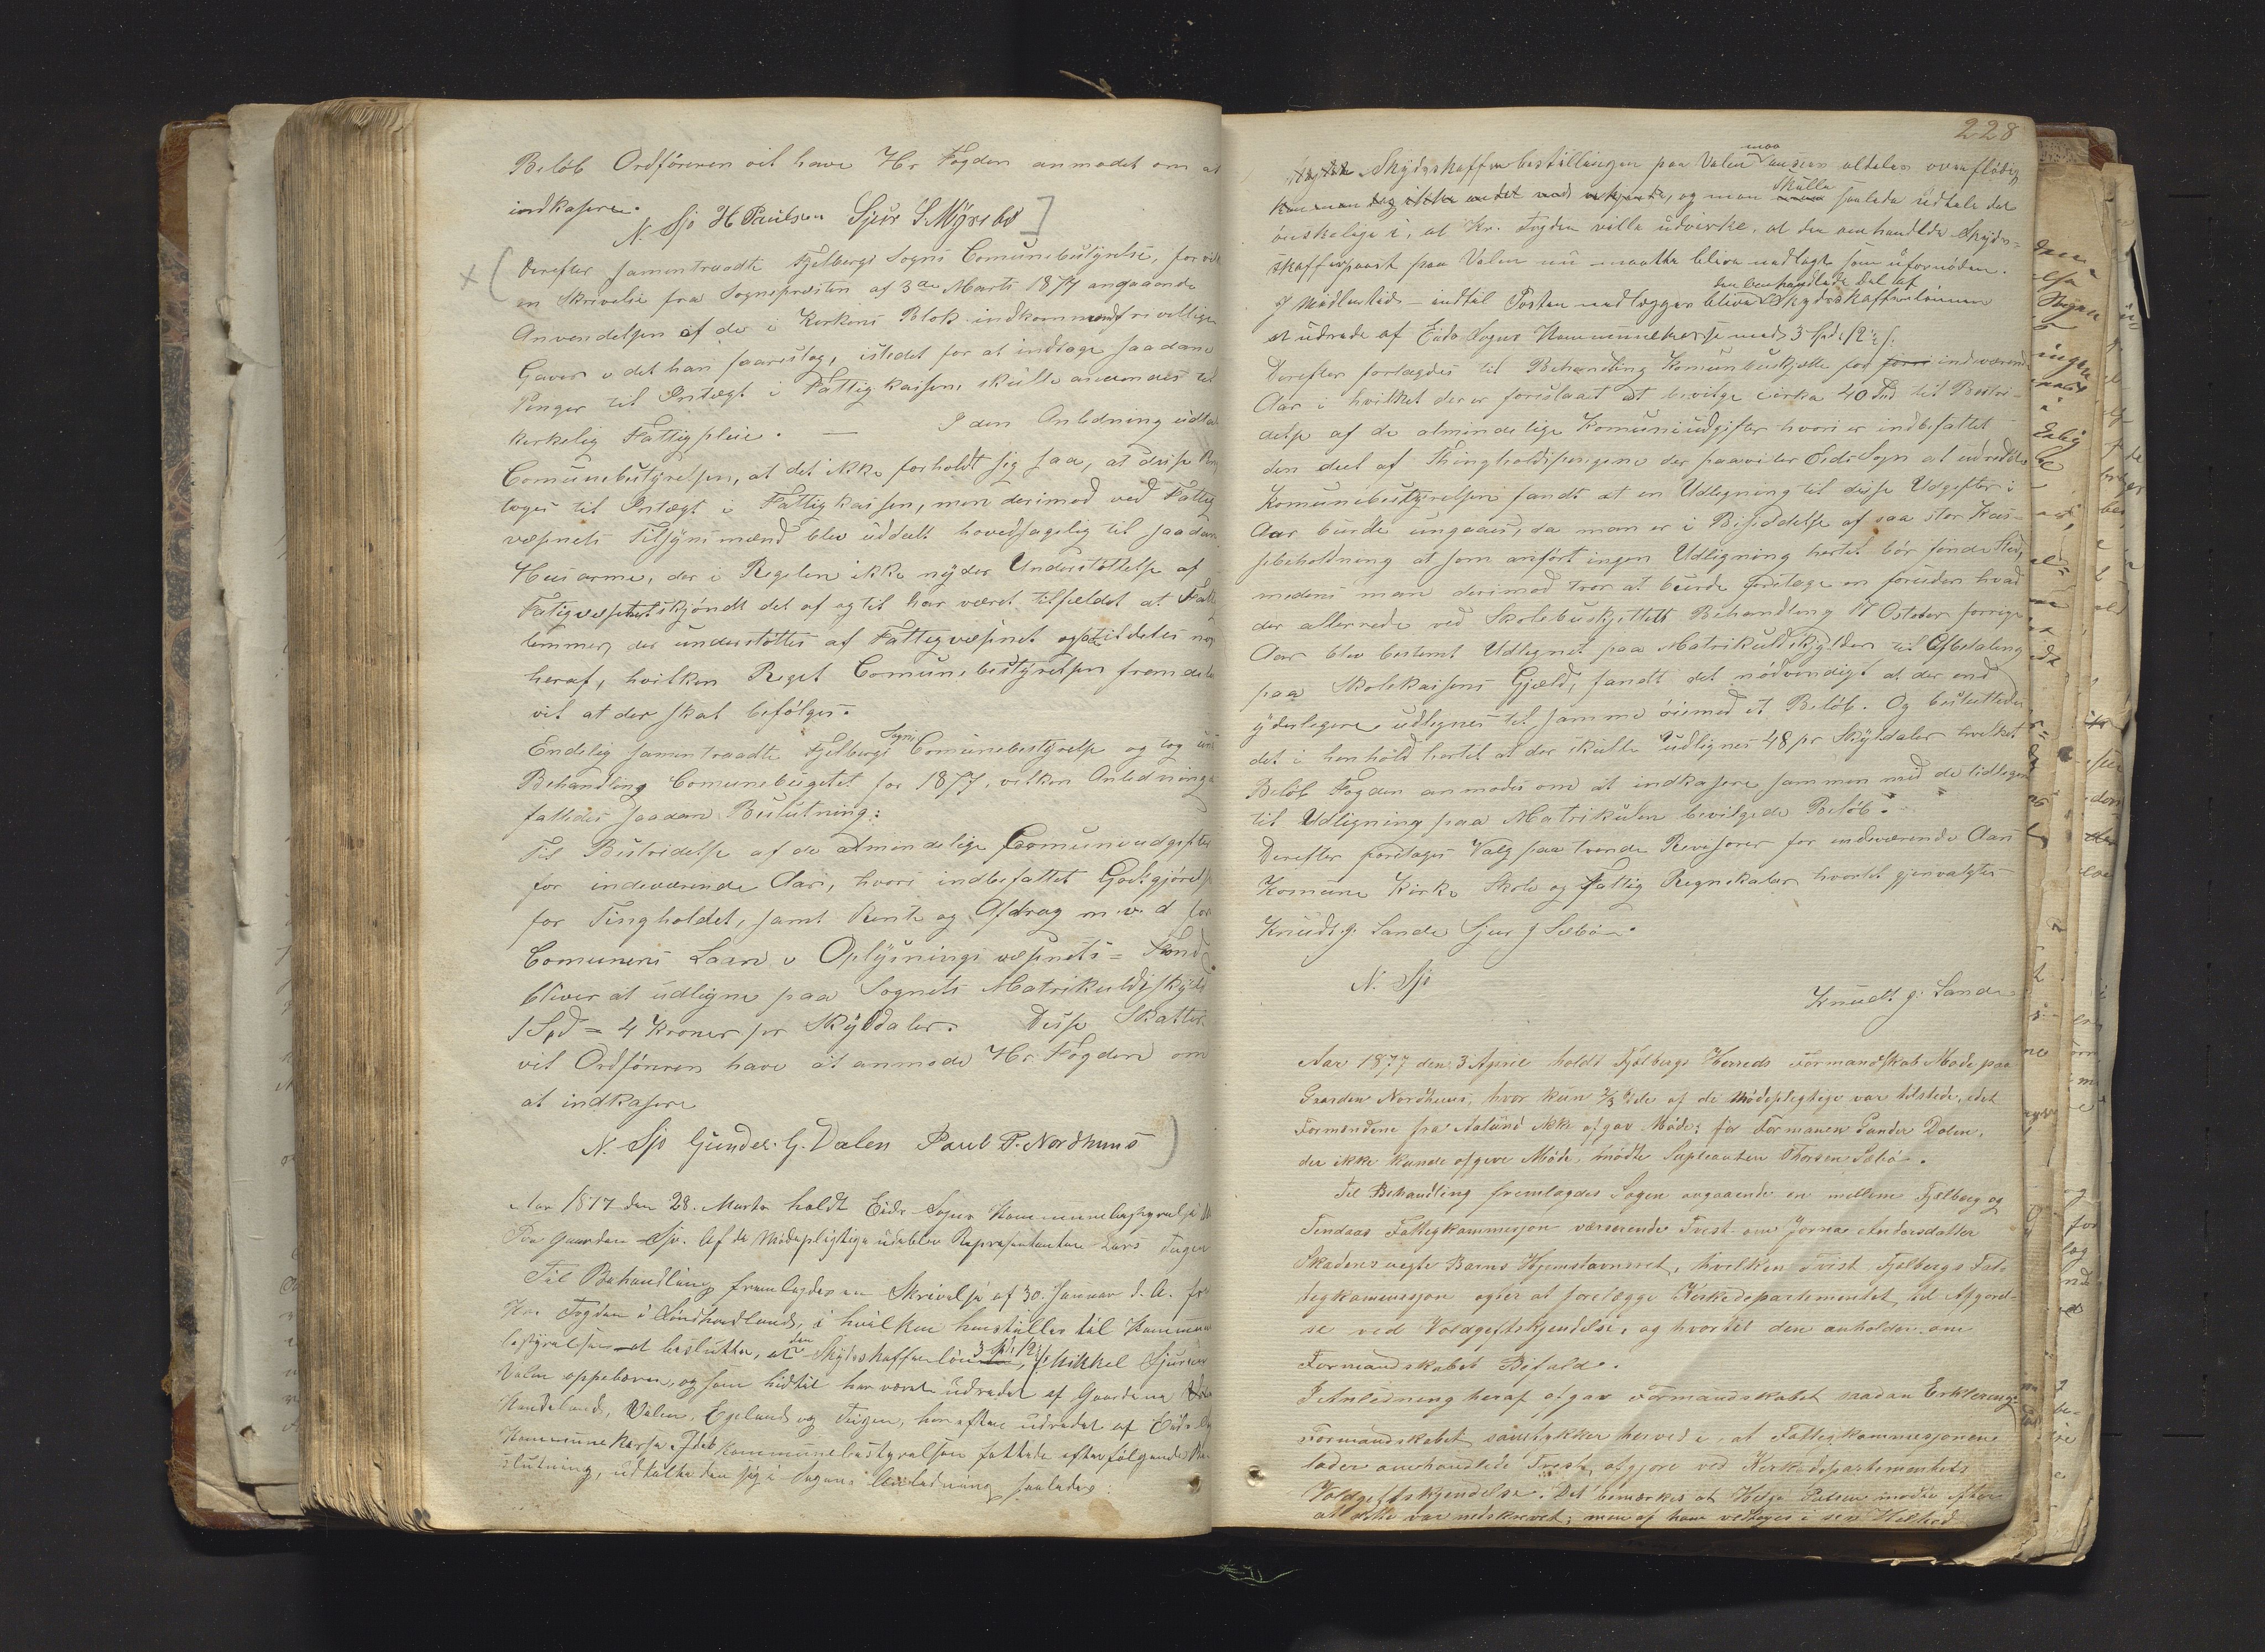 Beløb Ordføreren vil have Hr. Fogden anmodet om at
indkasere.
N. Sjo H Paulsen Sjur S. Myrebø
Derefter sammentraadte Fjelbergs Sogns Comunebestyrelse, for
en Skrivelse fra Sognepresten af 3die Marts 1877 angaaende
Anvendelsen af de i Kirkens Blok indkommende frivillige
Gaver i det han foareslog, istedet for at indtage saadanne
Penger til Indtægt i Fattigkassen, skulle anvendes til
kirkelig Fattigpleie. — I den Anledning udtalte
Comunebestyrelsen, at det ikke forholdt sig saa, at disse
toges til Indtægt i Fattigkassen, men derimod ved Fattig
væsnets Tilsynsmænd blev uddelt hovedsagelig til saadanne
Husarme, der i Regelen ikke nyder Understøttelse af
Fatigvæsnet skjøndt det af og til har været tilfældet at
lemmer, der understøttes af Fattigvæsnet ogsaa tildeles
heraf, hvilken Regel Comunebestyrelsen fremdeles
vil at der skal befølges.
Endelig sammentraadte Fjelbergs Sogns Comunebestyrelse og tog
Behandling Comunebugetet for 1877, vilken Anledning
fattedes saadan Beslutning:
Til Bestridelse af de almindelige Comuneudgifter
for indeværende Aar, hvori indbefattet Godtgjørelse
for Tingholdet, samt Rente og Afdrag m. v. d for
Comunens Laan i Oplysnings væsnets = Fond
bliver at udligne paa Sognets Matrikulskyld
1 Spd = 4 Kroner pr Skylddaler. Disse Skatter
vil Ordføreren have at anmode Hr. Fogden om
at indkasere
N. Sjo Gunder G. Valen Paul P. Nordhuus
Aar 1877 den 28. Marts holdt Eids Sogns Kommunebestyrelse
Paa Gaarden Sjo. Af de Mødepligtige udeblev Repræsentanten Lars
Til Behandling fremlagdes en Skrivelse af 30. Januar d. A. fra
Hr. Fogden i Søndhordland, i hvilken henstilles til Kommune
bestyrelsen at beslutte, at den Skydsskafferløn 3 Spd 12 Mikkel
Valen oppebærer, og som hidtil har været udredet af Gaardene
Handeland, Valen, Egeland og, herefter udredet af Eids
Kommunekasse. Idet Kommunebestyrelsen fattede efterfølgende
slutning, udtalte den sig i Sagens Anledning saaledes:
228
Skydsskafferbestillingen paa Valen maa ansees aldeles overflødig
og man skulle saaledes udtale det
ønskelige i, at Hr. Fogden ville udvirke, at den omhandlede Skyds-
skafferpost paa Valen nu maatte blive nedlagt som ufornøden.
I Mellemtid - indtil Posten nedlægges bliver den omhandlede Del af Skydsskafferlønnen
at udrede af Eids Sogns Kommunekasse med 3 Spd 12
Derefter forlagdes til Behandling Komunbuskjette for indværende
Aar i hvilket der er foreslaaet at bevilge cirka 40 Spd til Bestri-
delse af de almindelige Komuneudgifter hvori er indbefattet
den deel af Thingholdspengene der paaviler Eids Sogn at udredde
Komunebestyrelsen fandt at en Udlegning til disse Udgifter i
Aar burde ungaaes, da man er i Besiddelse af saa stor Kas-
sebeholdning at som anført ingen Udligning hertil bør finde sted,
medens man derimod tror at burde foretage en foruden hvad
der allerede ved Skolebuskjettets Behandling 17 October forrige
Aar blev bestemt Udlegnet paa Matrikulskylden til Afbetaling
paa Skolekassens Gjæld, fandt det nødvendigt at der end
yderligere udlegnes til samme øiemed et Beløb. Og besluttedes
det i henhold hertil at der skulle udlignes 48 pr Skyldaler hvilket
Beløb Fogden anmodes om at indkasere sammen med de tidligere
til Udligning paa Matrikulen bevilgede Beløb.
Derefter foretages Valg paa tvende Revisorer for indeværende Aars
Komune Kirke Skole og Fattig Regnskaber hvortil gjenvalgtes
Knud g. Sande Sjur J Sæbø.
N. Sjo
Knudt g. Sande
Aar 1877 den 3 April holdt Fjælbergs Herreds Formandskab Møde paa
Gaarden Nordhuus, hvor kun 2/3 Dele af de Mødeplegtige var tilstede, idet
Formændene fra Aalund ikke afgav Møde; for Formanen Gunder Dalen,
der ikke kunde afgive Møde, mødte Supleanten Thorsen Sæbø.
Til Behandling fremlagdes Sagen angaaende en mellem Fjelberg og
Fattigkommesjon værserende Tvest om Jorina Andersdatter
Skadens uegte Barns Hjemstavnsret, hvilken Tvist Fjelbergs Fat-
tigkommesjon agter at forelægge Kirkedepartementet til Afgjørel-
se ved Voldgeftskjendelse, og hvortil den anholder om
Formandskabets Bifald.
I Anledning heraf afgav Formandskabet saadan Erklering:
Formandskabet samtykker herved i, at Fattigkommesjonen
lader omhandlede Tvest afgjøre ved Kirkedepartementets
Voldgeftskjendelse. Det bemærkes at Helge Paulsen mødte efter
at dette var nedskrevet; men af ham vedtages i sin Helhed